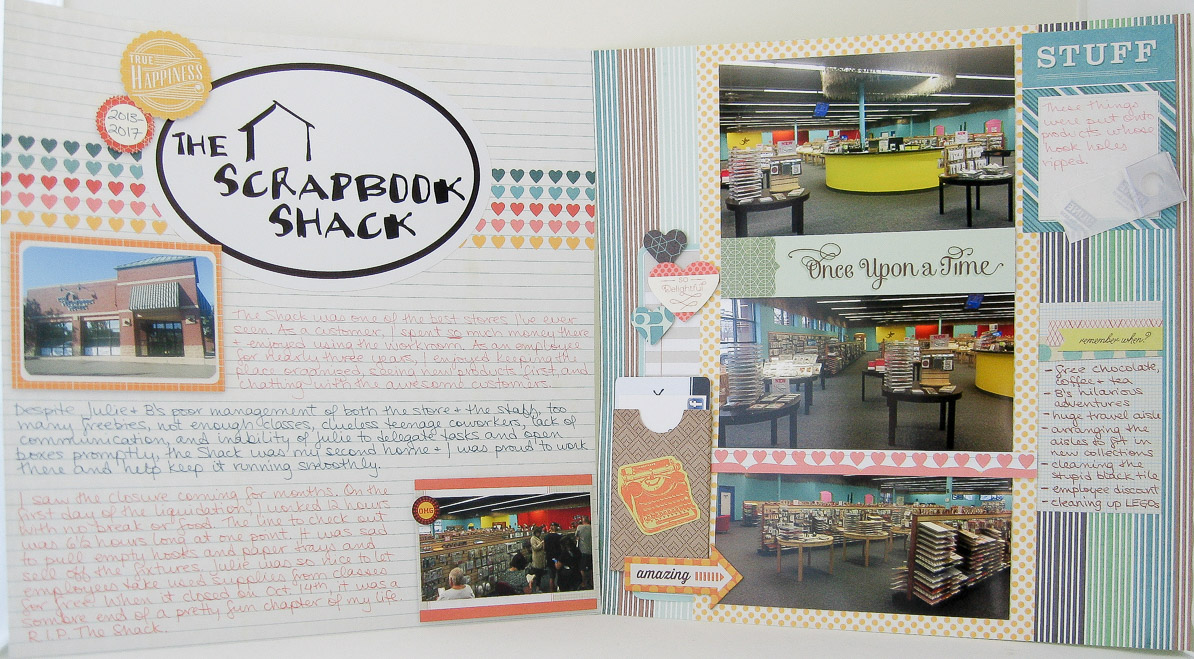 TRUE
HAPPINESS
2013-
2017
THE
SCRAPBOOK
SHACK
The Shack was one of the best stores I've ever
seen. As a customer, I spent so much money there
+ enjoyed using the workroom. As an employee
for nearly three years, I enjoyed keeping the
place organized, seeing new products first, and
chatting with the awesome customers.
Despite Julie + B's poor management of both the store + the staff, too
many freebies, not enough classes, clueless teenage coworkers, lack of
communication, and inability of Julie to delegate tasks and open
boxes promptly, the Shack was my second home + I was proud to work
there and help keep it running smoothly.
I saw the closure coming for months. On the
first day of the liquidation, I worked 12 hours
with no break or food. The line to check out
was 6 1/2 hours long at one point. It was sad
to pull empty hooks and paper trays and
sell off the fixtures. Julie was so nice to let
employees take used supplies from classes
for free! When it closed on Oct. 14th, it was a
sombre end of a pretty fun chapter of my life.
R.I.P. The Shack.
OMG
SO
Delightful
amazing
Once Upon a Time
STUFF
These things
were put onto
products whose
hook holes
ripped.
remember when?
- free chocolate,
coffee + tea
- B's hilarious
adventures
- huge travel aisle
- arranging the
aisles to fit in
new collections
- cleaning the
stupid black tile
- employee discount
- cleaning up LEGOs